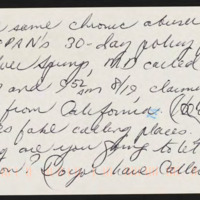 same chronic abuser
PAN's 30-day policy
Spring, MD called
and 9 52 am 8/19, claims
from California. (
fake calling places.
are you going to let
on? Do you have Caller